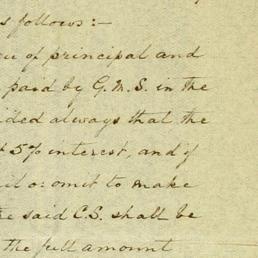 s follows:—
u of principal and
paid by G.M.S. in the
ided always that the
5% interest, and if
il or omit to make
he said C.S. shall be
the full amount